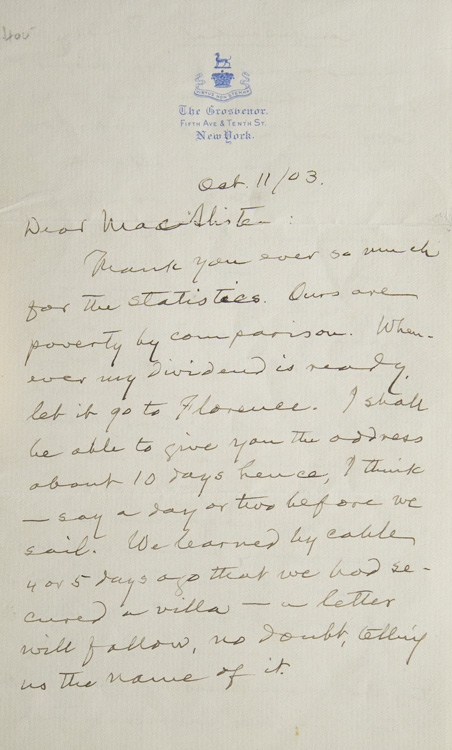 The Grosvenor.
Fifth Ave & Tenth St.
New York.
Oct. 11/03.
Dear MacAlister:
Thank you ever so much
for the statistics. Ours are
poverty by comparison. When-
ever my Dividend is ready,
let it go to Florence. I shall
be able to give you the address
about 10 days hence, I think
— say a day or two before we
sail. We learned by cable
4 or 5 days ago that we had se-
cured a villa — a letter
will follow, no doubt, telling
us the name of it.